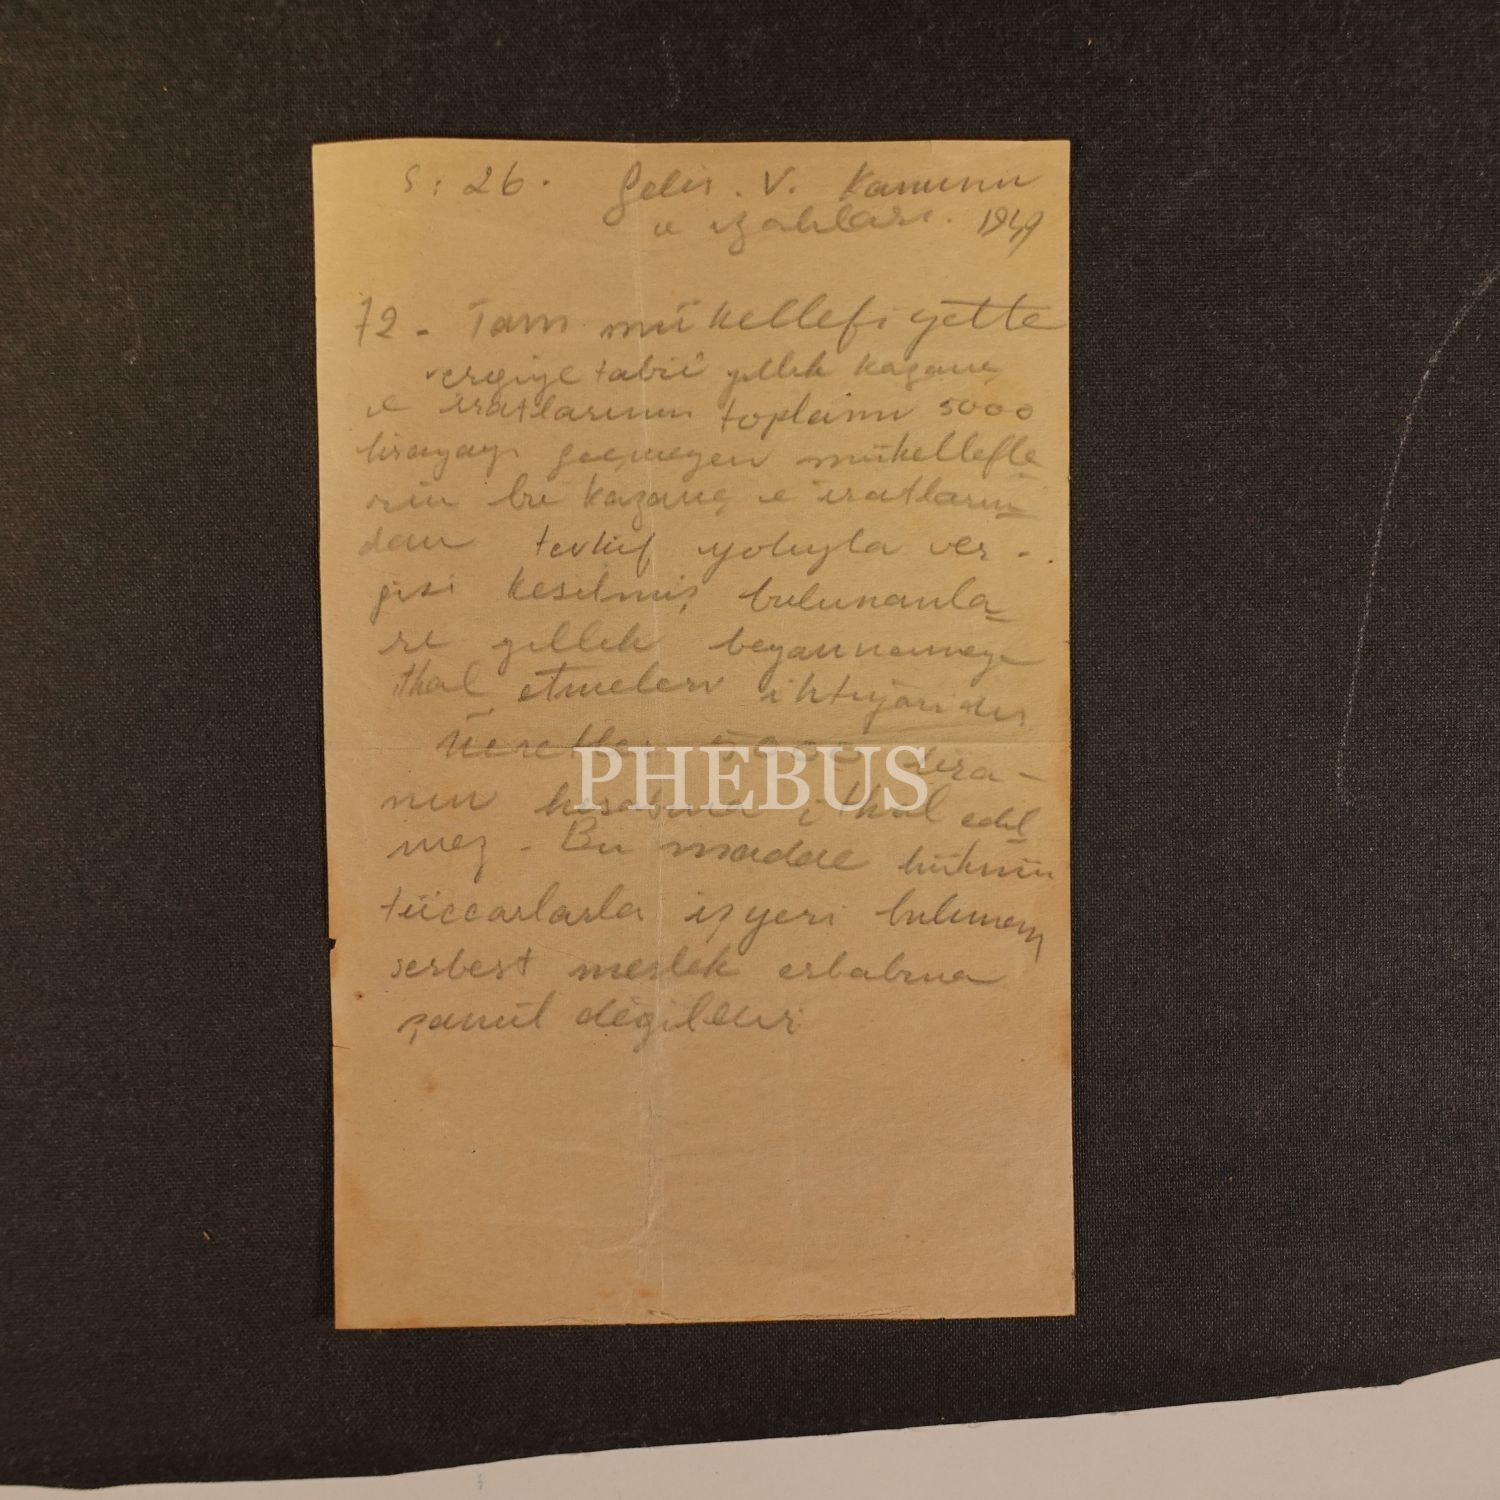 S: 26. Gelir. V. Kanunu
ve izahları. 1949
72 - Tam mükellefiyette
vergiye tabiî yıllık kazanç
ve iratlarının toplamı 5000
lirayayı geçmeyen mükellefle
rin bu kazanç ve iratların
dan tevkif yoluyla ver-
gisi kesilmiş bulunanla
rı yıllık beyannameye
ithal etmeleri ihtiyarîdir
Ücretler 5000 lira-
nın hesabına ithal edil
mez - Bu madde hükmü
tüccarlarla işyeri bulunan
serbest meslek erbabına
şamil değildir
PHEBUS